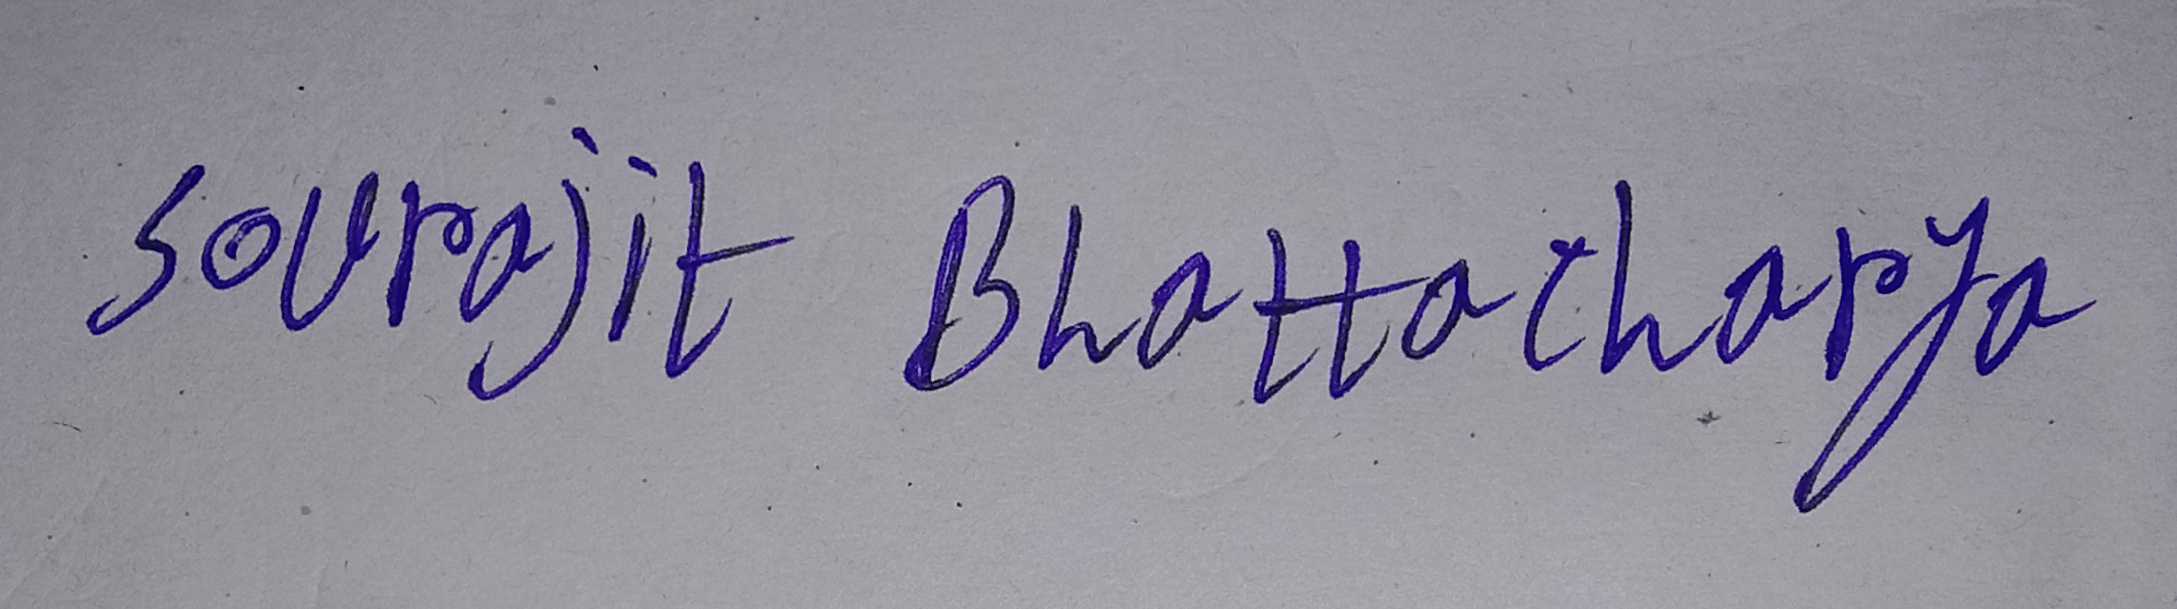 Sourajit Bhattacharya